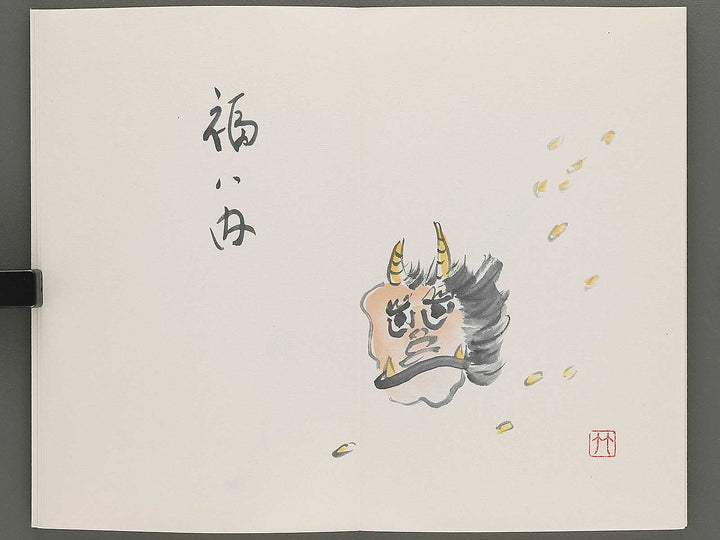 福ハ内
竹